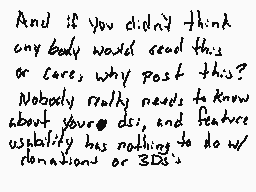 And if you didn't think
any body would read this
or care, why post this?
Nobody really needs to know
about your dsi, and feature
usability has nothing to do w/
donations or 3Ds's